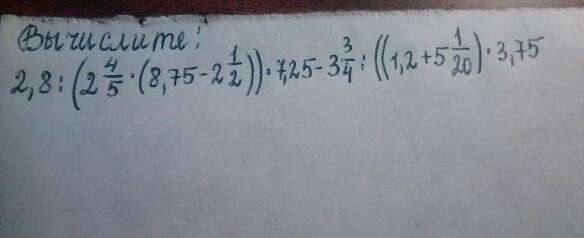 Вычислите:
2,8 : (2 4/5 · (8,75 - 2 1/2)) · 7,25 - 3 3/4 : ((1,2 + 5 1/20) · 3,75